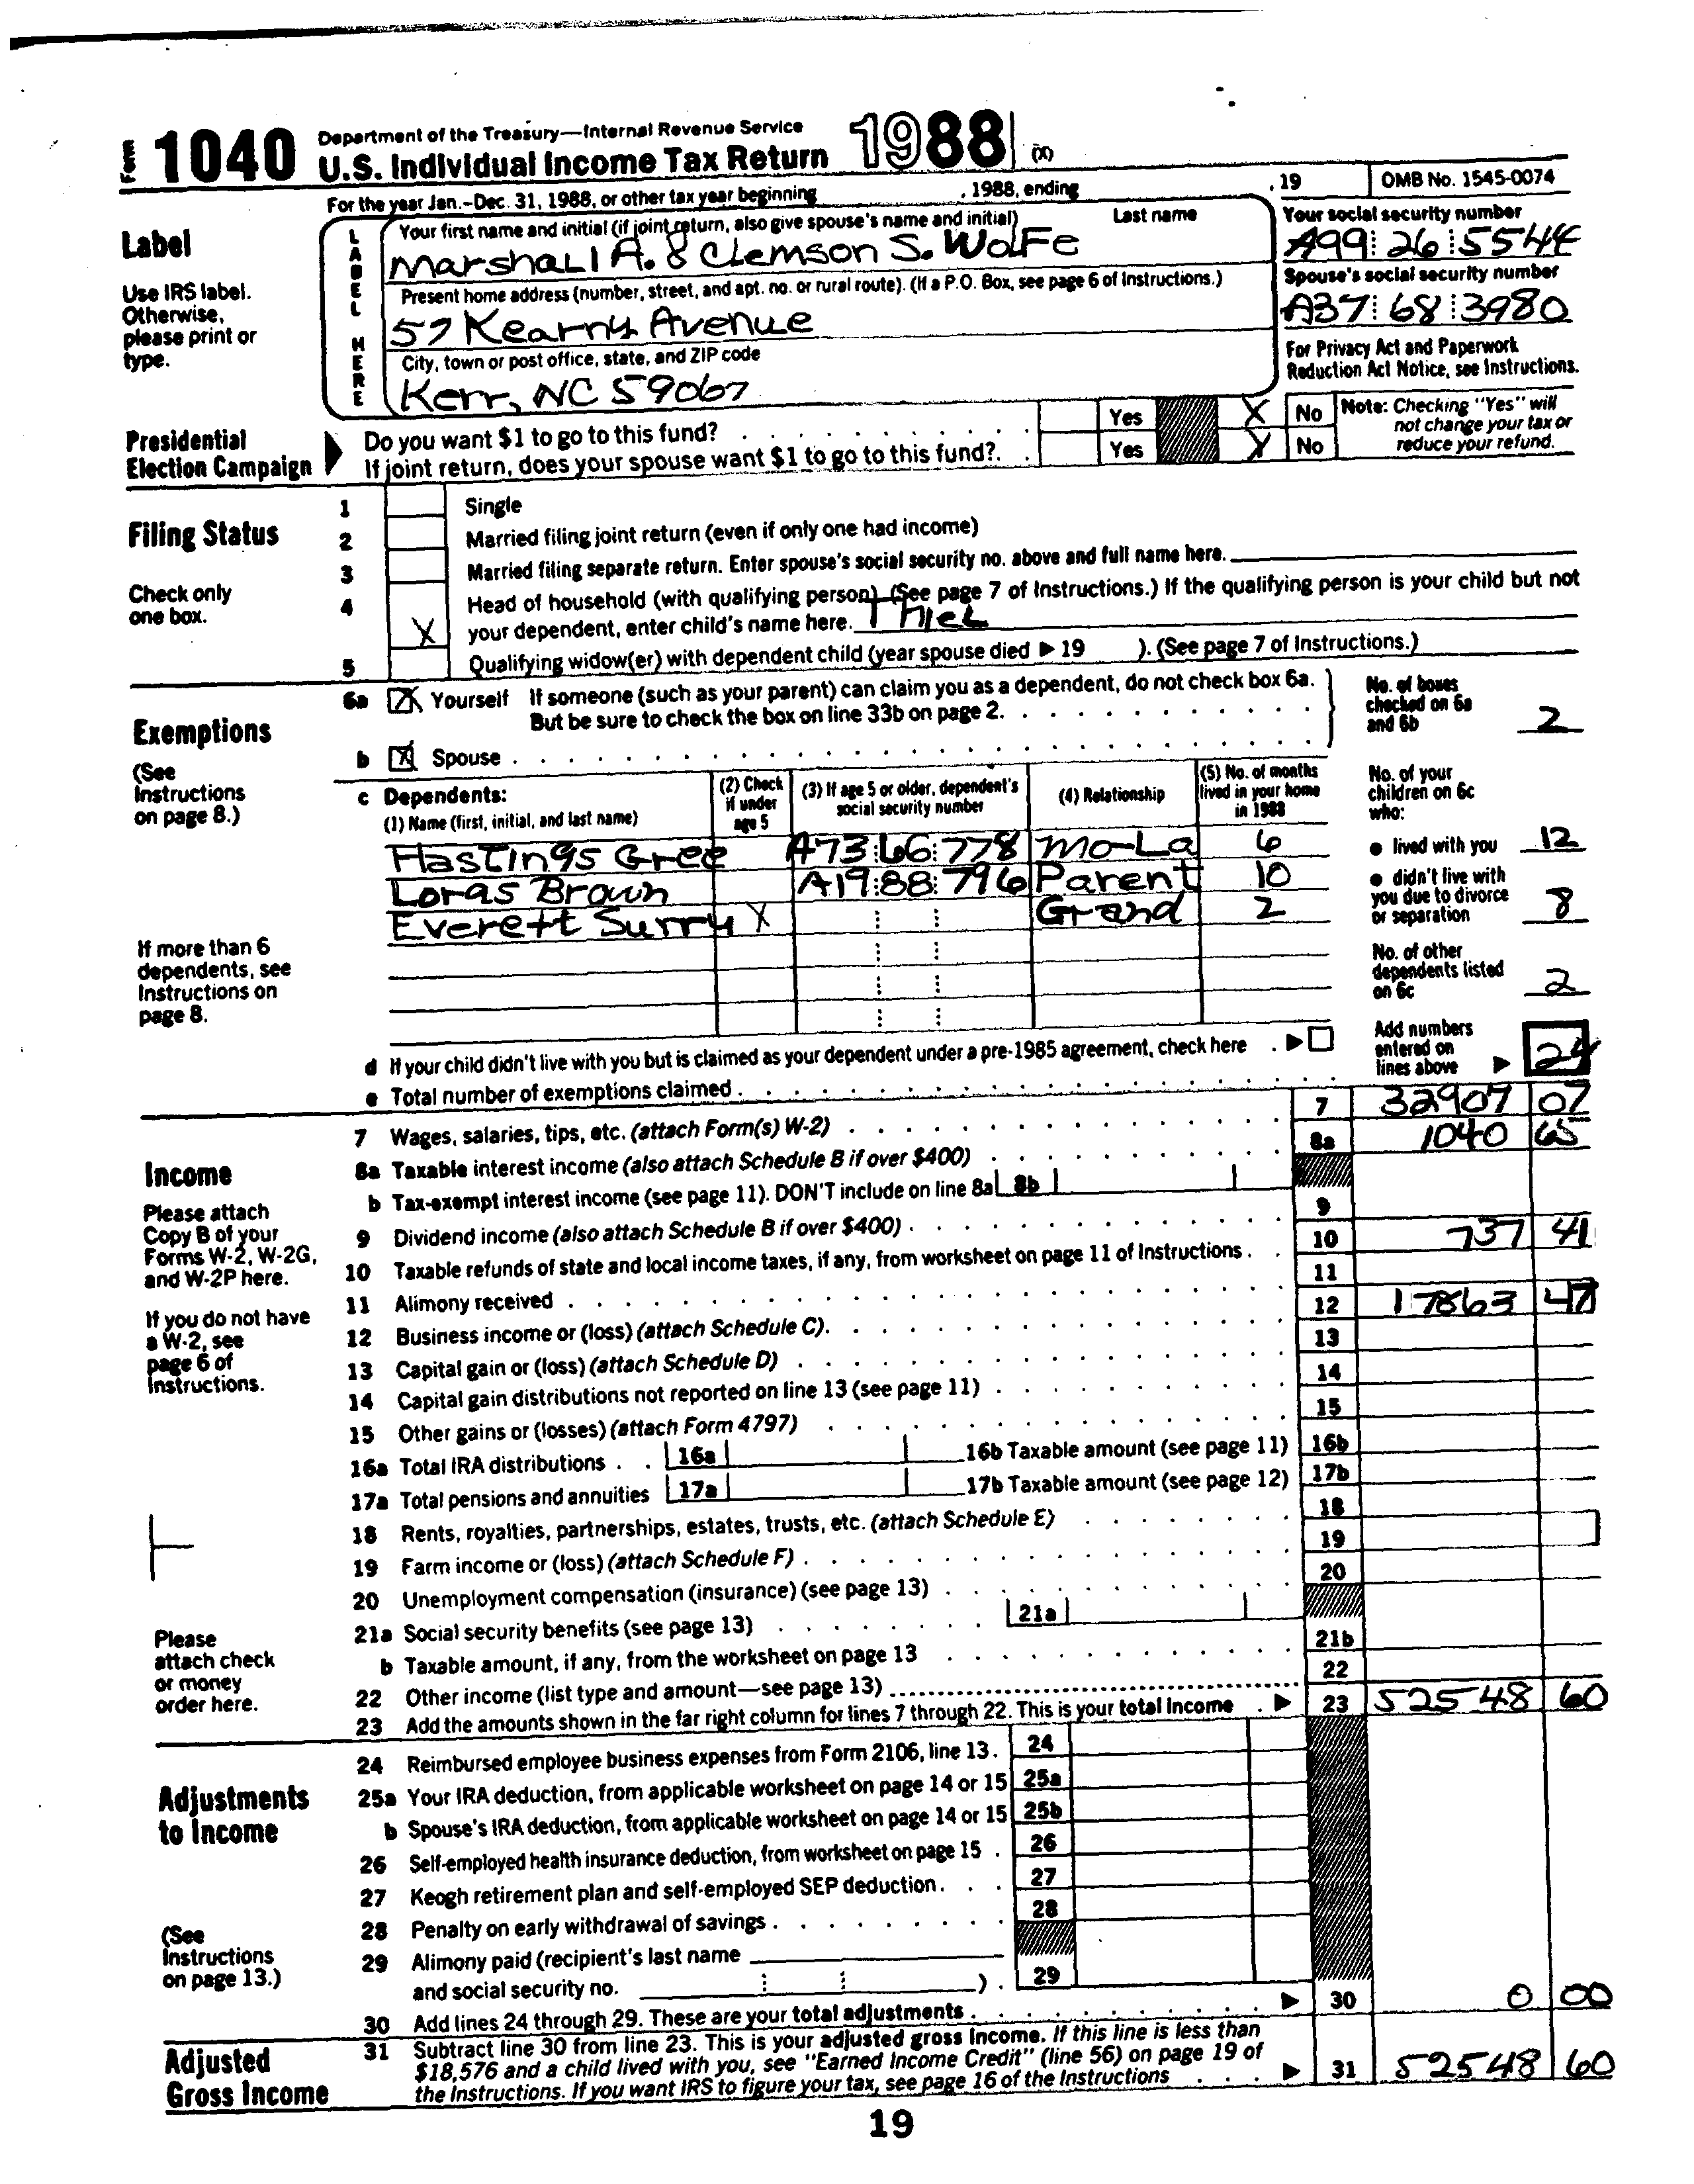 Form 1040 Department of the Treasury—Internal Revenue Service
U.S. Individual Income Tax Return 1988 (X)
For the year Jan.-Dec. 31, 1988, or other tax year beginning , 1988, ending , 19 OMB No. 1545-0074
Label
Use IRS label.
Otherwise,
please print or
type.
LABEL HERE
Your first name and initial (if joint return, also give spouse's name and initial) Last name
Marshall A. & Clemson S. Wolfe
Your social security number
A99 26 5544
Present home address (number, street, and apt. no. or rural route). (If a P.O. Box, see page 6 of Instructions.)
57 Kearny Avenue
Spouse's social security number
A37 68 3980
City, town or post office, state, and ZIP code
Kerr, NC 59067
For Privacy Act and Paperwork
Reduction Act Notice, see Instructions.
Presidential
Election Campaign
Do you want $1 to go to this fund? Yes X No
If joint return, does your spouse want $1 to go to this fund?. Yes X No
Note: Checking "Yes" will
not change your tax or
reduce your refund.
Filing Status
Check only
one box.
1 Single
2 Married filing joint return (even if only one had income)
3 Married filing separate return. Enter spouse's social security no. above and full name here.
4 Head of household (with qualifying person). (See page 7 of Instructions.) If the qualifying person is your child but not
X your dependent, enter child's name here. Thiel
5 Qualifying widow(er) with dependent child (year spouse died ▶ 19 ). (See page 7 of Instructions.)
Exemptions
(See
Instructions
on page 8.)
6a X Yourself If someone (such as your parent) can claim you as a dependent, do not check box 6a.
But be sure to check the box on line 33b on page 2.
b X Spouse
No. of boxes
checked on 6a
and 6b 2
c Dependents:
(1) Name (first, initial, and last name)
(2) Check
if under
age 5
(3) If age 5 or older, dependent's
social security number
(4) Relationship
(5) No. of months
lived in your home
in 1988
Hastings Gree A73 66 778 Mo-La 6
Loras Brown A19 88 796 Parent 10
Everett Surry X Grand 2
No. of your
children on 6c
who:
● lived with you 12
● didn't live with
you due to divorce
or separation 8
No. of other
dependents listed
on 6c 2
If more than 6
dependents, see
Instructions on
page 8.
d If your child didn't live with you but is claimed as your dependent under a pre-1985 agreement, check here . ▶
e Total number of exemptions claimed
Add numbers
entered on
lines above ▶ 24
Income
Please attach
Copy B of your
Forms W-2, W-2G,
and W-2P here.
If you do not have
a W-2, see
page 6 of
Instructions.
Please
attach check
or money
order here.
7 Wages, salaries, tips, etc. (attach Form(s) W-2) 7 32907 07
8a Taxable interest income (also attach Schedule B if over $400) 8a 1040 65
b Tax-exempt interest income (see page 11). DON'T include on line 8a 8b
9 Dividend income (also attach Schedule B if over $400) 9
10 Taxable refunds of state and local income taxes, if any, from worksheet on page 11 of Instructions 10 737 41
11 Alimony received 11
12 Business income or (loss) (attach Schedule C). 12 17863 47
13 Capital gain or (loss) (attach Schedule D) 13
14 Capital gain distributions not reported on line 13 (see page 11) 14
15 Other gains or (losses) (attach Form 4797) 15
16a Total IRA distributions 16a 16b Taxable amount (see page 11) 16b
17a Total pensions and annuities 17a 17b Taxable amount (see page 12) 17b
18 Rents, royalties, partnerships, estates, trusts, etc. (attach Schedule E) 18
19 Farm income or (loss) (attach Schedule F) 19
20 Unemployment compensation (insurance) (see page 13) 20
21a Social security benefits (see page 13) 21a
b Taxable amount, if any, from the worksheet on page 13 21b
22 Other income (list type and amount—see page 13) 22
23 Add the amounts shown in the far right column for lines 7 through 22. This is your total income ▶ 23 52548 60
Adjustments
to Income
(See
Instructions
on page 13.)
24 Reimbursed employee business expenses from Form 2106, line 13. 24
25a Your IRA deduction, from applicable worksheet on page 14 or 15 25a
b Spouse's IRA deduction, from applicable worksheet on page 14 or 15 25b
26 Self-employed health insurance deduction, from worksheet on page 15 . 26
27 Keogh retirement plan and self-employed SEP deduction 27
28 Penalty on early withdrawal of savings 28
29 Alimony paid (recipient's last name
and social security no. ) . 29
30 Add lines 24 through 29. These are your total adjustments ▶ 30 0 00
Adjusted
Gross Income
31 Subtract line 30 from line 23. This is your adjusted gross income. If this line is less than
$18,576 and a child lived with you, see "Earned Income Credit" (line 56) on page 19 of
the Instructions. If you want IRS to figure your tax, see page 16 of the Instructions ▶ 31 52548 60
19